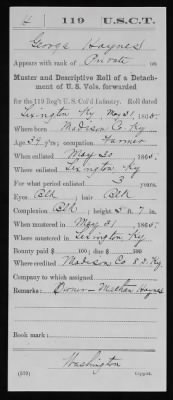 H | 119 | U.S.C.T.
George Haynes
Appears with rank of Private on
Muster and Descriptive Roll of a Detach-
ment of U. S. Vols. forwarded
for the 119 Reg't U.S. Col'd Infantry. Roll dated
Lexington Ky May 31, 1865.
Where born Madison Co Ky
Age 39 y'rs; occupation Farmer
When enlisted May 30, 1865.
Where enlisted Lexington Ky
For what period enlisted 3 years.
Eyes Blk; hair Blk
Complexion Blk; height 5 ft. 7 in.
When mustered in May 31, 1865.
Where mustered in Lexington Ky
Bounty paid $ 100; due $ 100
Where credited Madison Co 8 D. Ky.
Company to which assigned
Remarks: Owner Haynes
Book mark:
Washington
(339) Copyist.